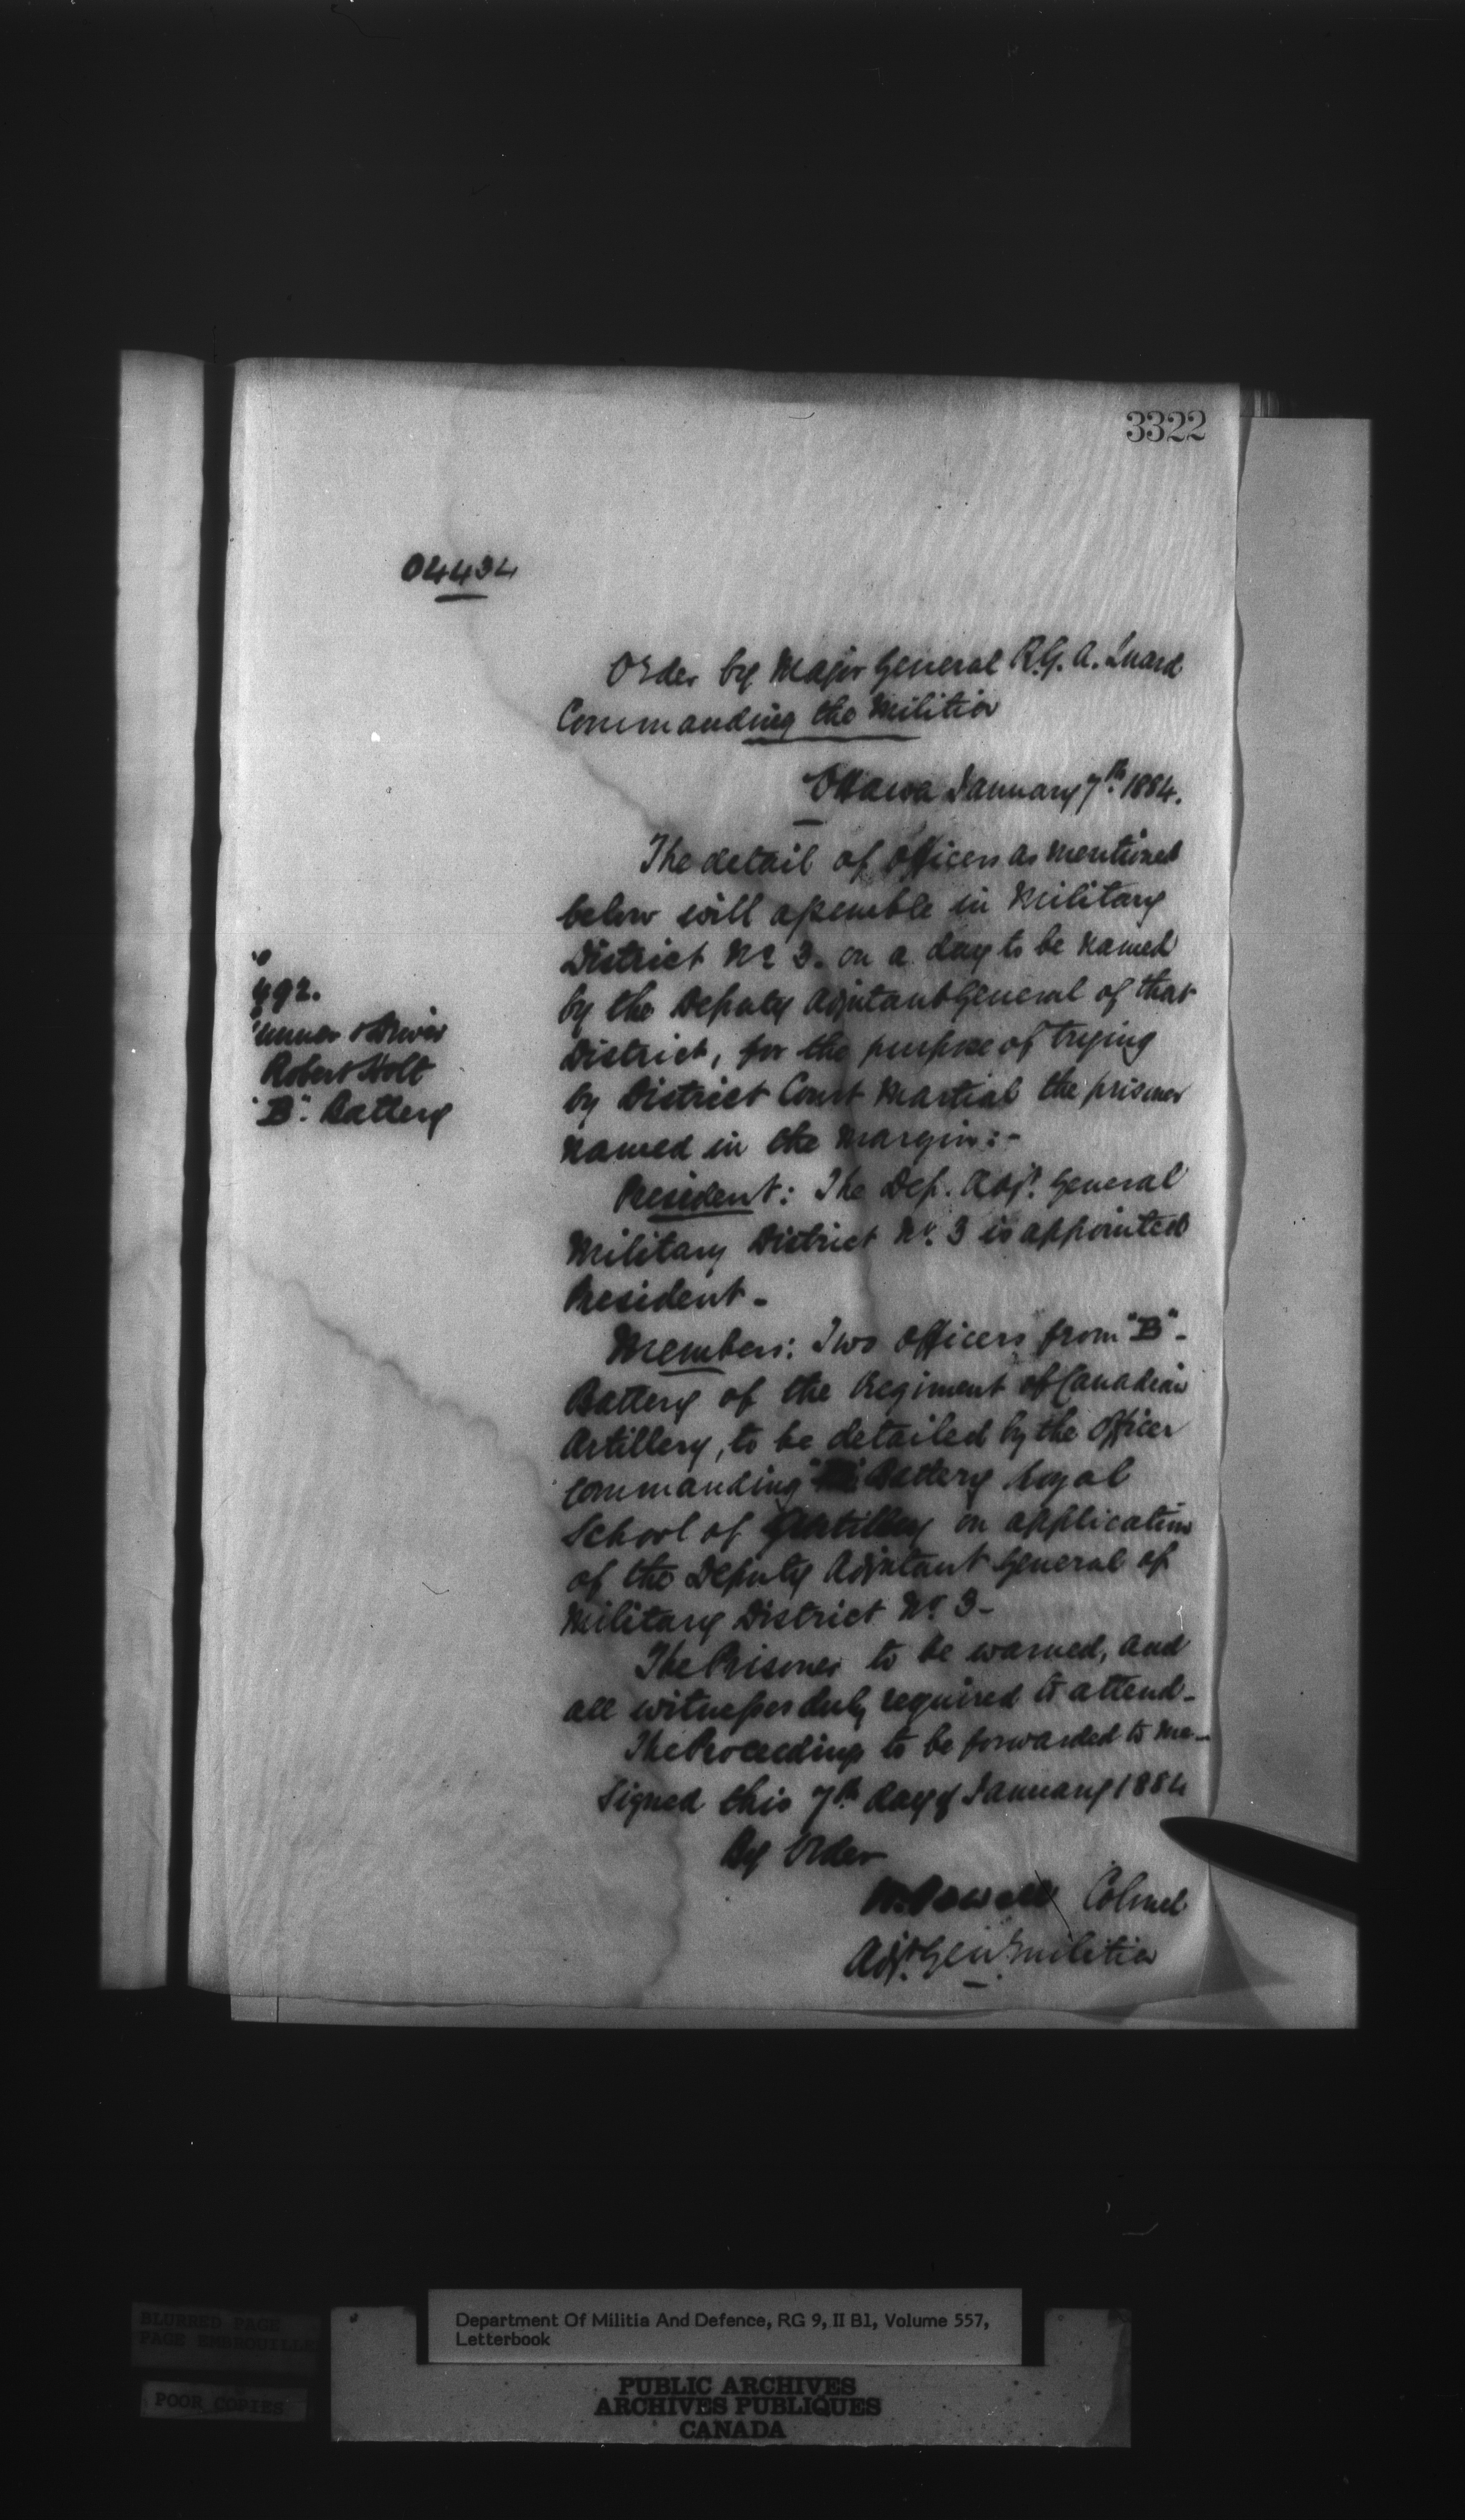 3322
04434
Order by Major General R.G.A. Luard
Commanding the Militia
Ottawa January 7th 1884.
The detail of Officers as mentioned
below will assemble in Military
District No 3. on a day to be named
by the Deputy Adjutant General of that
District, for the purpose of trying
by District Court Martial the prisoner
named in the margin:-
492.
unner & Driver
Robert Holt
"B". Battery
President: The Dep. Adjt. General
Military District No. 3 is appointed
President -
Members: Two officers from "B" -
Battery of the Regiment of Canadian
Artillery, to be detailed by the Officer
Commanding Battery Royal
School of Artillery on application
of the Deputy Adjutant General of
Military District No 3 -
The Prisoner to be warned, and
all witnesses duly required to attend -
The Proceedings to be forwarded to me -
Signed this 7th day of January 1884
By Order
W. Powell Colonel
Adjt. Genl. Militia
BLURRED PAGE
PAGE EMBROUILLE
POOR COPIES
Department Of Militia And Defence, RG 9, II B1, Volume 557,
Letterbook
PUBLIC ARCHIVES
ARCHIVES PUBLIQUES
CANADA